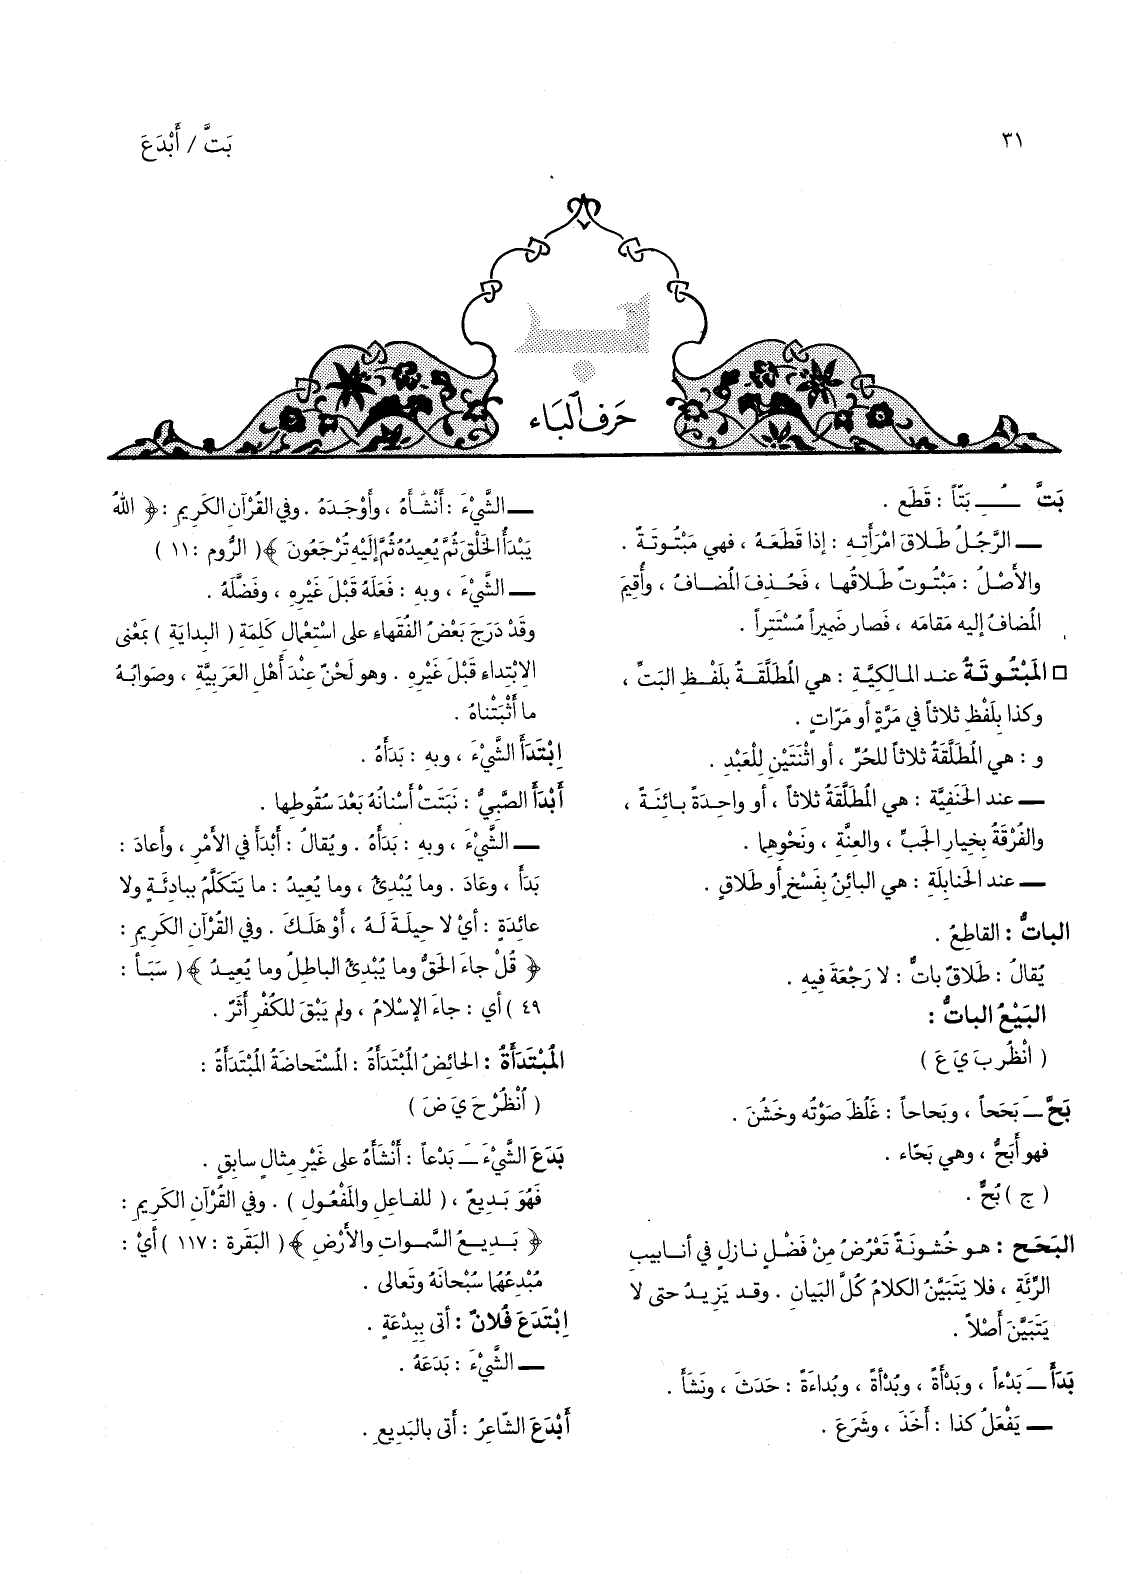 ٣١
بَتَّ / أَبْدَعَ
حَرف البَاء
بَتَّ ـُـ بَتّاً : قَطَع .
ــ الرَّجُلُ طَلاقَ امْرَأتِه : إذا قَطَعَهُ ، فهي مَبْتُوتَةٌ .
والأصْلُ : مَبْتُوتٌ طَلاقُها ، فَحُذِفَ المُضافُ ، وأُقِيمَ
المُضافُ إليه مَقامَه ، فَصار ضَمِيراً مُسْتَتِراً .
□ المَبْتُوتَةُ عند المالِكِيَّةِ : هي المُطَلَّقَةُ بلَفْظِ البَتِّ ،
وكذا بِلَفْظِ ثلاثاً في مَرَّةٍ أو مَرّاتٍ .
و : هي المُطَلَّقَةُ ثلاثاً للحُرِّ ، أو اثْنَتَيْنِ لِلْعَبْدِ .
ــ عند الحَنَفِيَّة : هي المُطَلَّقَةُ ثلاثاً ، أو واحِدَةً بائِنَةً ،
والفُرْقَةُ بِخِيارِ الجَبِّ ، والعِنَّةِ ، ونَحْوِهِما .
ــ عند الحَنابِلَةِ : هي البائِنُ بِفَسْخٍ أو طَلاقٍ .
الباتُّ : القاطِعُ .
يُقالُ : طَلاقٌ باتٌّ : لا رَجْعَةَ فِيهِ .
البَيْعُ الباتُّ :
( اُنْظُر بَ يَ عَ )
بَحَّ ـَـ بَحَحاً ، وبَحاحاً : غَلُظَ صَوْتُه وخَشُنَ .
فهو أبَحُّ ، وهي بَحّاء .
( ج ) بُحٌّ .
البَحَح : هو خُشونَةٌ تَعْرُضُ مِنْ فَضْلٍ نازِلٍ في أنابيب
الرِّئَةِ ، فلا يَتَبَيَّنُ الكلامُ كُلَّ البَيان . وقد يَزِيدُ حتى لا
يَتَبَيَّنَ أصْلاً .
بَدَأَ ـَـ بَدْءاً ، وبَدْأَةً ، وبُدْأةً ، وبُداءَةً : حَدَثَ ، ونَشَأَ .
ــ يَفْعَلُ كذا : أَخَذَ ، وشَرَعَ .
ــ الشَّيْءَ : أَنْشَأهُ ، وأَوْجَدَهُ . وفي القُرْآنِ الكَرِيمِ : ﴿ اللهُ
يَبْدَأُ الخَلْقَ ثُمَّ يُعِيدُهُ ثُمَّ إلَيْهِ تُرْجَعُونَ ﴾ ( الرُّوم : ١١ )
ــ الشَّيْءَ ، وبِهِ : فَعَلَهُ قَبْلَ غَيْرِهِ ، وفَضَّلَهُ .
وقَدْ دَرَجَ بَعْضُ الفُقَهاء على اسْتِعْمالِ كَلِمَةِ ( البِدايَةِ ) بِمَعْنى
الابْتِداءِ قَبْلَ غَيْرِهِ . وهو لَحْنٌ عِنْدَ أَهْلِ العَرَبِيَّةِ ، وصَوابُهُ
ما أَثْبَتْناهُ .
اِبْتَدَأَ الشَّيْءَ ، وبِهِ : بَدَأهُ .
أَبْدَأَ الصَّبيُّ : نَبَتَتْ أَسْنانُهُ بَعْدَ سُقُوطِها .
ــ الشَّيْءَ ، وبِهِ : بَدَأهُ . ويُقالُ : أَبْدَأَ في الأَمْرِ ، وأعادَ :
بَدَأَ ، وعَادَ . وما يُبْدِئُ ، وما يُعِيدُ : ما يَتَكَلَّمُ بِبادِئَةٍ ولا
عائِدَةٍ : أيْ لا حِيلَةَ لَهُ ، أوْ هَلَكَ . وفي القُرْآنِ الكَرِيمِ :
﴿ قُلْ جاءَ الحَقُّ وما يُبْدِئُ الباطِلُ وما يُعِيدُ ﴾ ( سَبَأ :
٤٩ ) أي : جاءَ الإسْلامُ ، ولم يَبْقَ للكُفْرِ أَثَرٌ .
المُبْتَدَأَةُ : الحائِضُ المُبْتَدَأَةُ : المُسْتَحاضَةُ المُبْتَدَأَةُ :
( اُنْظُرْ حَ يَ ضَ )
بَدَعَ الشَّيْءَ ـَـ بَدْعاً : أَنْشَأهُ على غَيْرِ مِثالٍ سابِقٍ .
فَهُوَ بَدِيعٌ ، ( للفاعِلِ والمَفْعُولِ ) . وفي القُرْآنِ الكَرِيمِ :
﴿ بَدِيعُ السَّمواتِ والأَرْضِ ﴾ ( البَقَرة : ١١٧ ) أيْ :
مُبْدِعُهُما سُبْحانَهُ وتَعالى .
اِبْتَدَعَ فُلانٌ : أتى بِبِدْعَةٍ .
ــ الشَّيْءَ : بَدَعَهُ .
أَبْدَعَ الشّاعِرُ : أَتى بالبَدِيعِ .